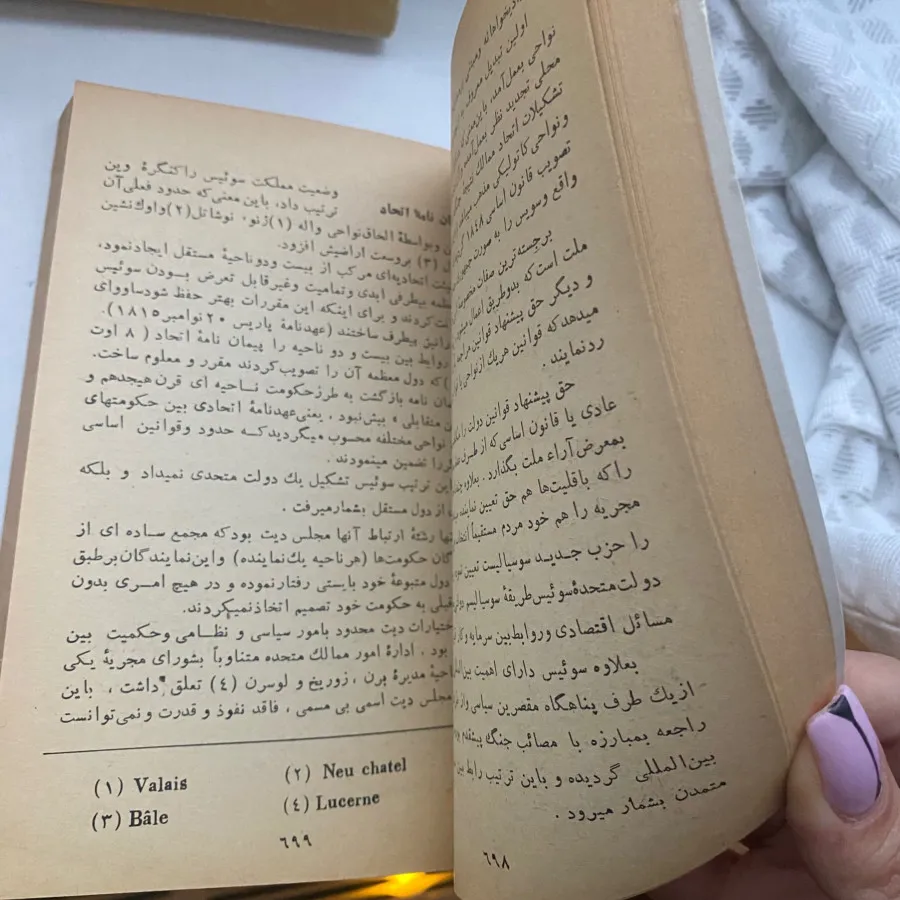 اولین تبدیل
نواحی بعمل آمد، باین معنی که
محلی تجدید نظر بعمل آمد
تشکیلات اتحاد ممالک
ونواحی کاتولیکی مذهب
تصویب قانون اساسی ۱۸۴۸
واقع وسویس را به صورت
برجسته‌ترین صفات
ملت است که بدوطریق اعمال
و دیگر حق پیشنهاد قوانین
میدهد که قوانین هریك ازنواحی یا
ردنمایند .
حق پیشنهاد قوانین دولت را
عادی یا قانون اساسی که از طرف
بمعرض آراء ملت بگذارد . بعلاوه
را که باقلیت‌ها هم حق تعیین نماینده
مجریه را هم خود مردم مستقیماً
را حزب جدید سوسیالیست تعیین
دولت متحدهٔ سوئیس طریقهٔ سوسیالیسم
مسائل اقتصادی وروابط بین سرمایه وکار
بعلاوه سوئیس دارای اهمیت
ازیك طرف پناهگاه مقصرین سیاسی واز
راجعه بمبارزه با مصائب جنگ پیشقدم
بین‌المللی گردیده و باین ترتیب رابط بین
متمدن بشمار میرود .
۶۹۸
وضعیت مملکت سوئیس را کنگرهٔ وین
نامهٔ اتحاد ترتیب داد، باین معنی که حدود فعلی آن
وبواسطهٔ الحاق نواحی واله (۱) ژنو، نوشاتل (۲) واوك نشین
(۳) بروسعت اراضیش افزود.
اتحادیه‌ای مرکب از بیست ودو ناحیهٔ مستقل ایجاد نمود،
بیطرفی ابدی وتمامیت وغیرقابل تعرض بودن سوئیس
کردند و برای اینکه این مقررات بهتر حفظ شود ساووای
بیطرف ساختند (عهدنامهٔ پاریس ۲۰ نوامبر ۱۸۱۵).
روابط بین بیست و دو ناحیه را پیمان نامهٔ اتحاد ( ۸ اوت
) که دول معظمه آن را تصویب کردند مقرر و معلوم ساخت.
نامه بازگشت به طرز حکومت ناحیه ای قرن هیجدهم و
متقابلی » بیش نبود ، یعنی عهدنامهٔ اتحادی بین حکومتهای
نواحی مختلفه محسوب میگردید که حدود وقوانین اساسی
را تضمین مینمودند .
این ترتیب سوئیس تشکیل یك دولت متحدی نمیداد و بلکه
از دول مستقل بشمار میرفت .
رشتهٔ ارتباط آنها مجلس دیت بود که مجمع ساده ای از
حکومت‌ها (هر ناحیه یك نماینده) واین نمایندگان برطبق
دول متبوعهٔ خود بایستی رفتار نموده و در هیچ امری بدون
به حکومت خود تصمیم اتخاذ نمیکردند.
اختیارات دیت محدود بامور سیاسی و نظامی وحکمیت بین
بود . ادارهٔ امور ممالک متحده متناوباً بشورای مجریهٔ یکی
مدیرهٔ برن ، زوریخ و لوسرن (۴) تعلق داشت ، باین
مجلس دیت اسمی بی مسمی ، فاقد نفوذ و قدرت ونمی‌توانست
(۱) Valais (۲) Neu chatel
(۳) Bâle (٤) Lucerne
۶۹۹